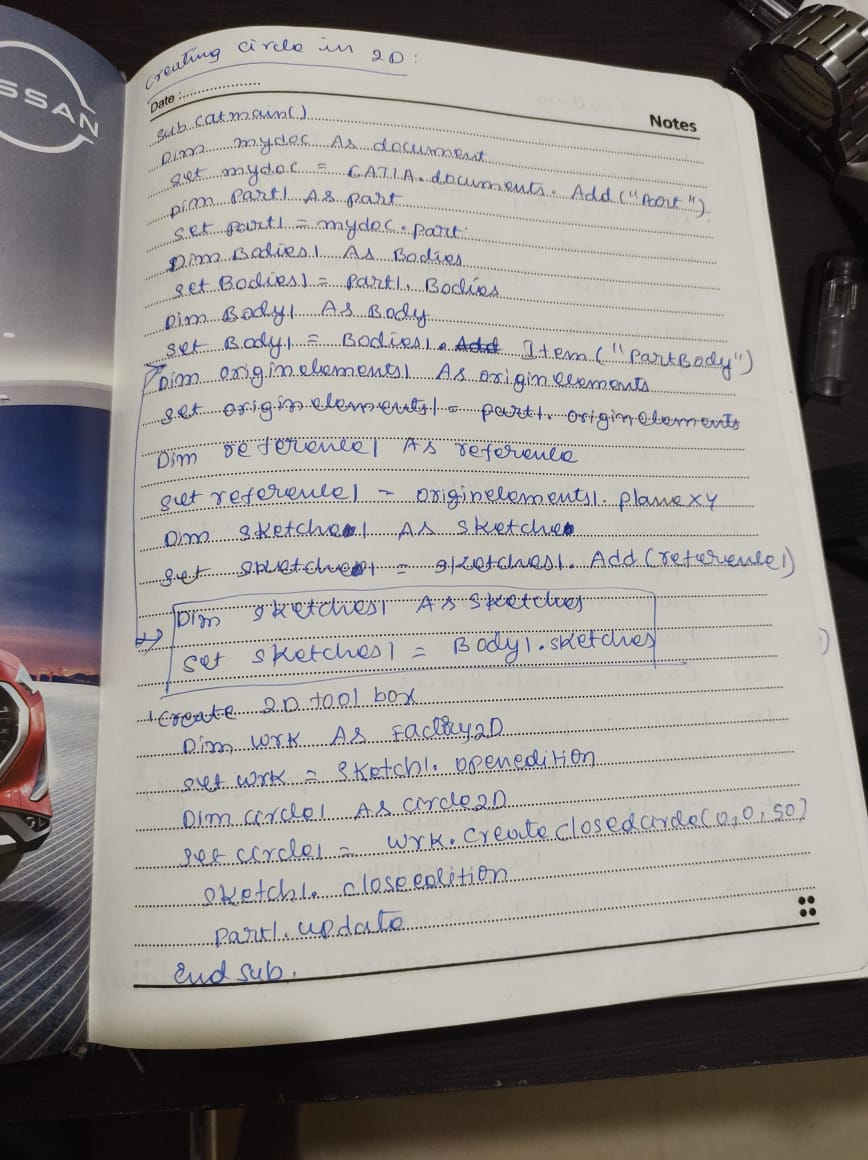 SSAN
Creating circle in 2D:
Date :
Notes
Sub catmain()
Dim mydoc As document
set mydoc = CATIA.documents. Add ("Part").
Dim Part1 As part
set part1 = mydoc.part.
Dim Bodies1 As Bodies
set Bodies1 = Part1. Bodies
Dim Body1 As Body
set Body1 = Bodies1. Add Item ("PartBody")
Dim originelements1 As originelements
set originelements1 = part1. originelements
Dim reference1 As reference
set reference1 = originelements1. planexy
Dim sketch1 As sketch
set sketch1 = sketches1. Add (reference1)
Dim sketches1 As sketches
set sketches1 = Body1.sketches
'create 2D tool box
Dim wrk As Factory2D
set wrk = sketch1. openedition
Dim circle1 As circle2D
set circle1 = wrk. create closedcircle(0,0,50)
sketch1. closeedition
part1. update
end sub.